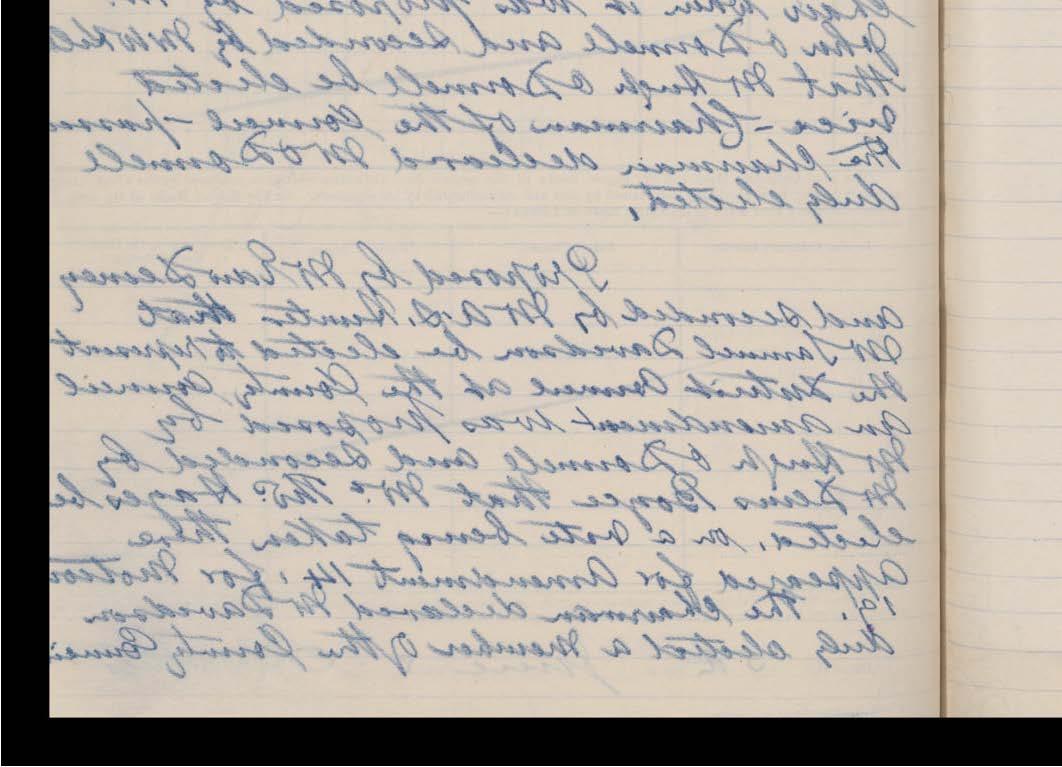 chair when it was proposed by Mr
John O'Donnell and seconded by Mr
that Mr Hugh O'Donnell be elected
vice-Chairman of the Council -
the Chairman declared Mr O'Donnell
duly elected,
Proposed by Mr Edw Deeney
and seconded by Mr A.S. Hunter that
Mr Samuel Davidson be elected to represent
the District Council at the County Council
an amendment was proposed by
Mr Hugh O'Donnell and seconded by
Mr Denis Boyce that Mr Thos Hayes be
elected, on a vote being taken, there
appeared for Amendment 14, for Motion
19. The Chairman declared Mr Davidson
duly elected a Member of the County